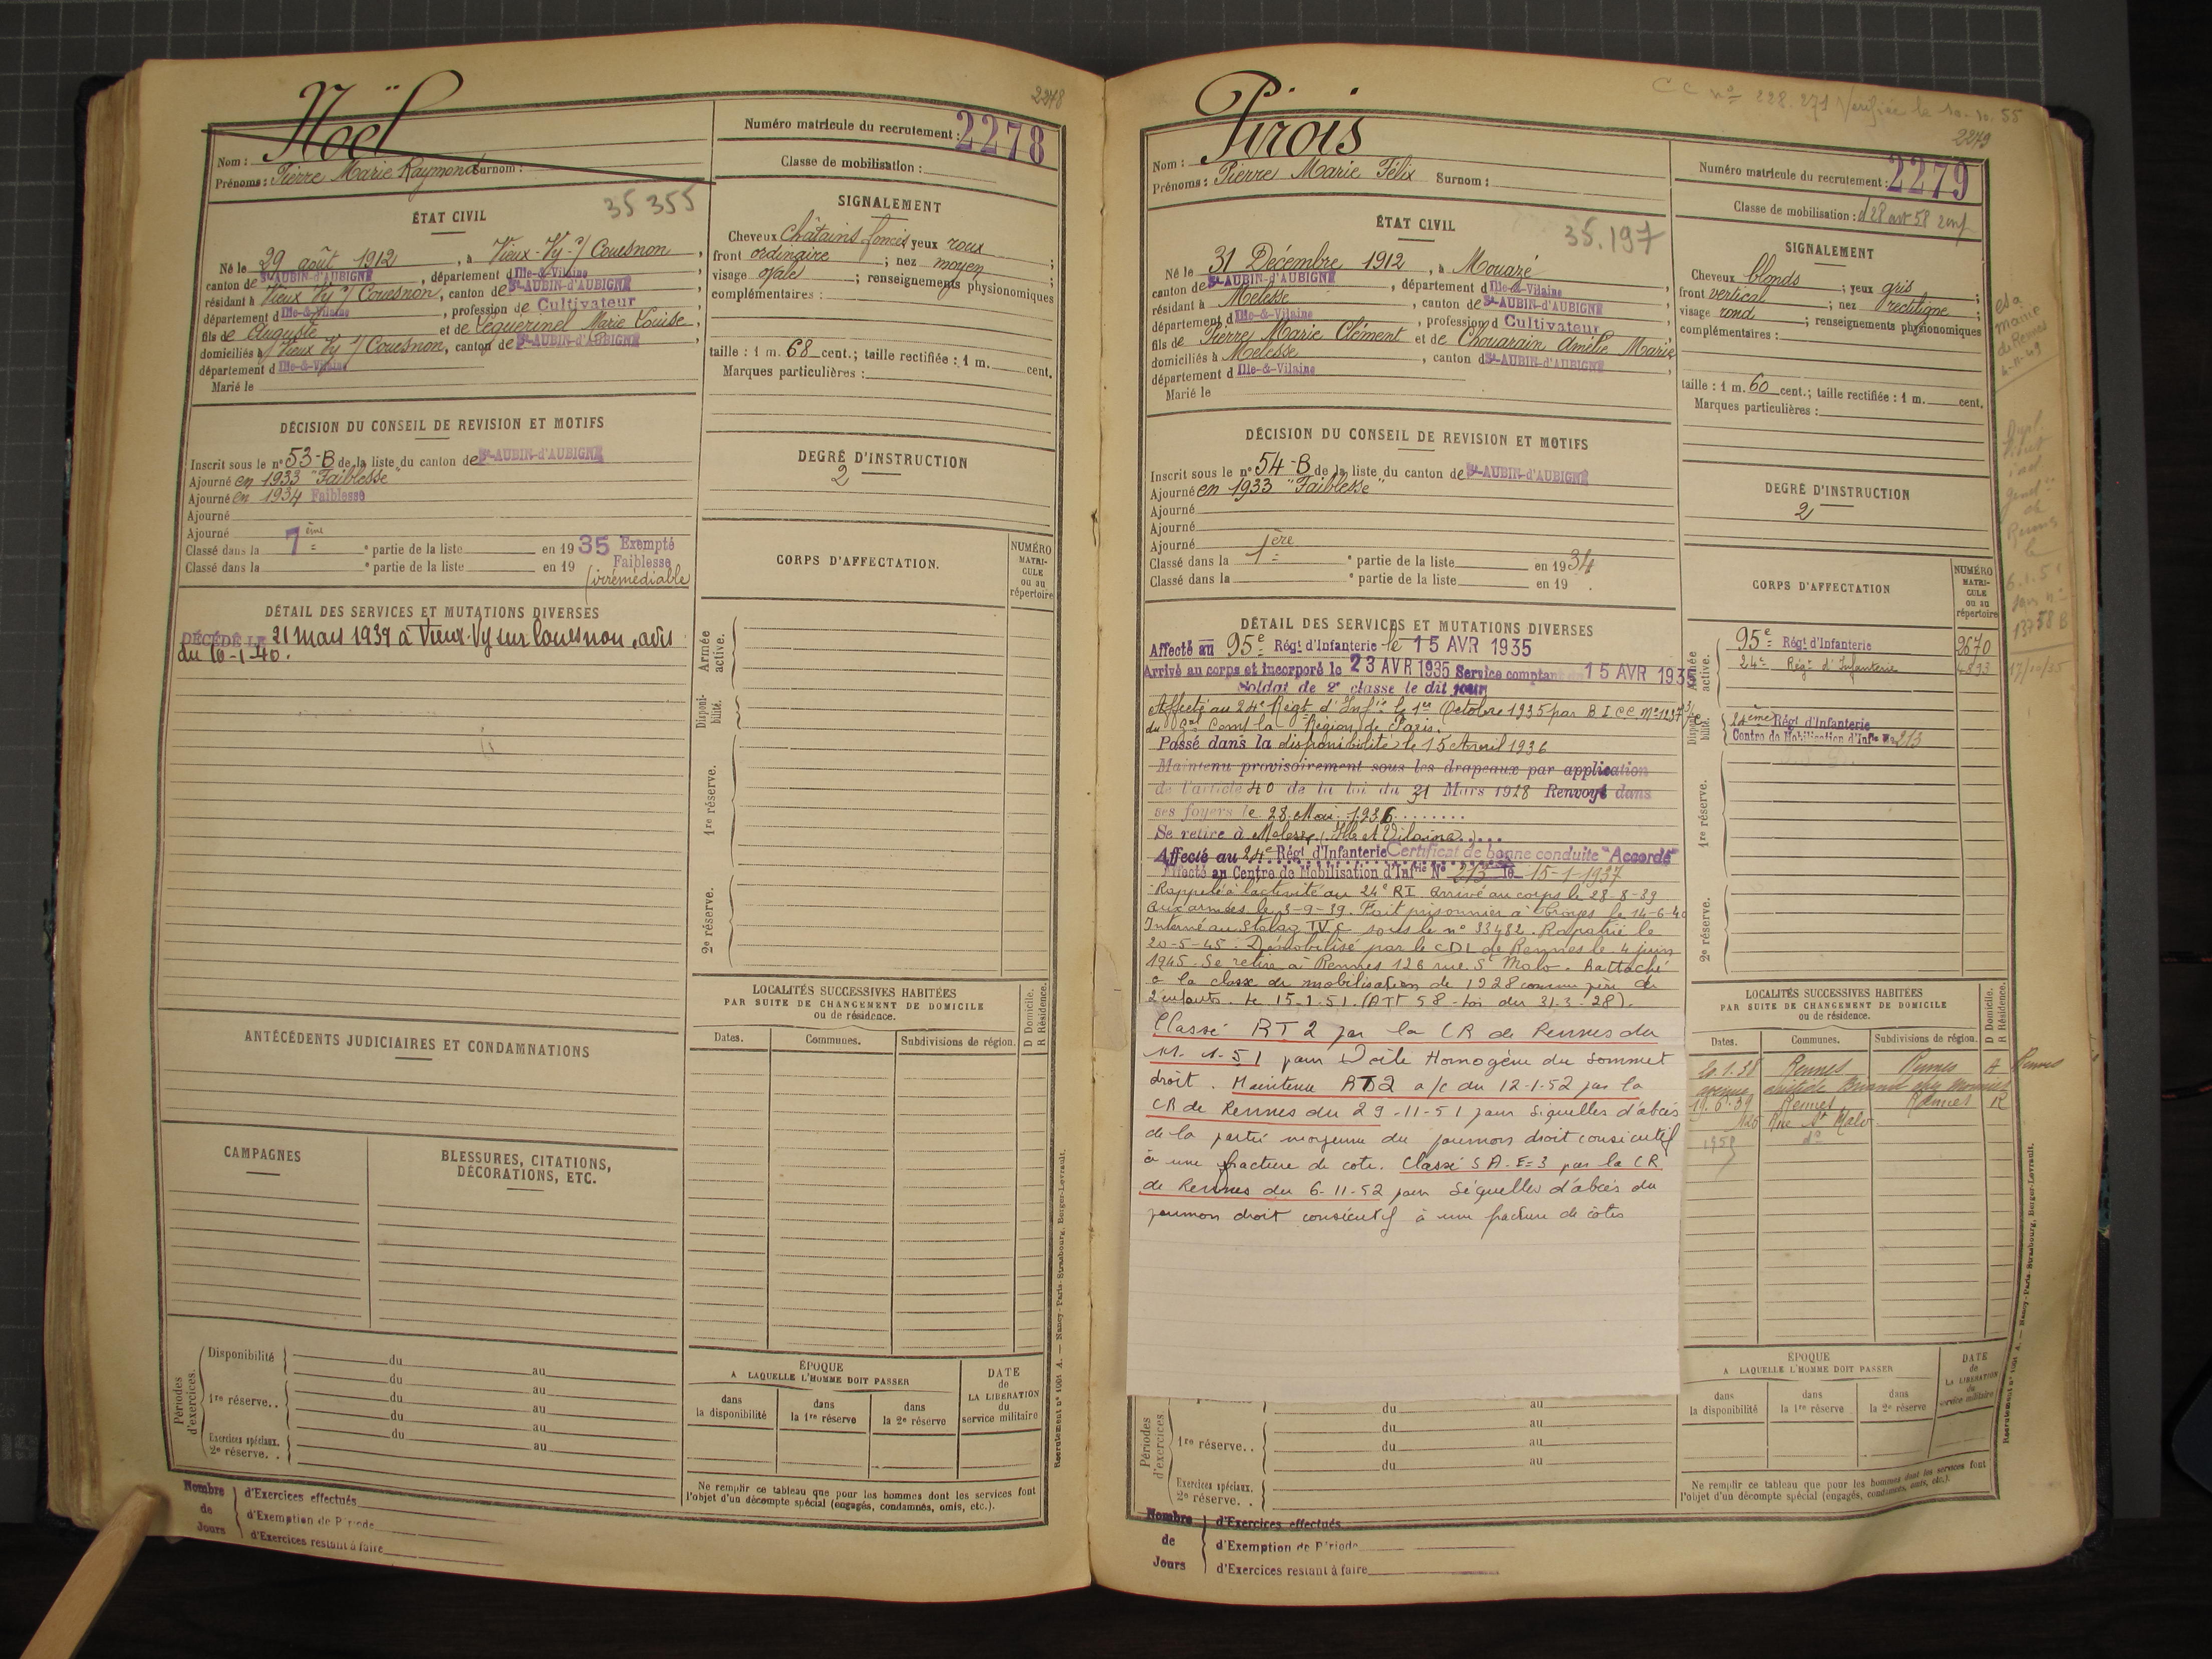 2278
Noël
Nom :
Prénoms : Pierre Marie Raymond Surnom :
Numéro matricule du recrutement : 2278
Classe de mobilisation :
35355
ÉTAT CIVIL
Né le 29 août 1912, à Vieux-Vy-s/ Couesnon,
canton de St-AUBIN-d'AUBIGNÉ, département d Ille-&-Vilaine
résidant à Vieux Vy s/ Couesnon, canton de St-AUBIN-d'AUBIGNÉ
département d Ille-&-Vilaine, profession de Cultivateur
fils de Auguste et de Leguérinel Marie Louise,
domiciliés à Vieux Vy s/ Couesnon, canton de St-AUBIN-d'AUBIGNÉ
département d Ille-&-Vilaine
Marié le
SIGNALEMENT
Cheveux châtains foncés yeux roux ;
front ordinaire ; nez moyen ;
visage ovale ; renseignements physionomiques
complémentaires :
taille : 1 m. 68 cent.; taille rectifiée : 1 m. cent.
Marques particulières :
DÉCISION DU CONSEIL DE REVISION ET MOTIFS
Inscrit sous le n° 53-B de la liste du canton de St-AUBIN-d'AUBIGNÉ
Ajourné en 1933 "Faiblesse"
Ajourné en 1934 Faiblesse
Ajourné
Ajourné
Classé dans la 7ème partie de la liste en 1935 Exempté
Faiblesse
Classé dans la e partie de la liste en 19 (irrémédiable
DEGRÉ D'INSTRUCTION
2
DÉTAIL DES SERVICES ET MUTATIONS DIVERSES
DÉCÉDÉ LE 21 mars 1939 à Vieux-Vy sur Couesnon, avis
du 10-1-40.
CORPS D'AFFECTATION.
NUMÉRO
MATRI-
CULE
ou au
répertoire
Armée active.
Disponi-
bilité.
1re réserve.
2e réserve.
ANTÉCÉDENTS JUDICIAIRES ET CONDAMNATIONS
LOCALITÉS SUCCESSIVES HABITÉES
PAR SUITE DE CHANGEMENT DE DOMICILE
ou de résidence.
D Domicile.
R Résidence.
Dates. Communes. Subdivisions de région.
CAMPAGNES
BLESSURES, CITATIONS,
DÉCORATIONS, ETC.
Périodes d'exercices.
Disponibilité du au
du au
1re réserve.. du au
du au
Exercices spéciaux.
2e réserve. . du au
ÉPOQUE
A LAQUELLE L'HOMME DOIT PASSER
dans
la disponibilité
dans
la 1re réserve
dans
la 2e réserve
DATE
de
LA LIBÉRATION
du
service militaire
Ne remplir ce tableau que pour les hommes dont les services font
l'objet d'un décompte spécial (engagés, condamnés, omis, etc.).
Nombre
de
Jours
d'Exercices effectués
d'Exemption de Période
d'Exercices restant à faire
Recrutement n° 1001 A. — Nancy-Paris-Strasbourg, Berger-Levrault.
CC n° 228.271 Vérifiée le 10.10.55
2279
Pirois
Nom :
Prénoms : Pierre Marie Félix Surnom :
Numéro matricule du recrutement : 2279
Classe de mobilisation : d 28 art 58 2 enf
35.197
ÉTAT CIVIL
Né le 31 Décembre 1912, à Mouazé
canton de St-AUBIN-d'AUBIGNÉ, département d Ille-&-Vilaine
résidant à Melesse, canton de St-AUBIN-d'AUBIGNÉ
département d Ille-&-Vilaine, profession d Cultivateur
fils de Pierre Marie Clément et de Chouarain Amélie Marie
domiciliés à Melesse, canton d St-AUBIN-d'AUBIGNÉ
département d Ille-&-Vilaine
Marié le
SIGNALEMENT
Cheveux blonds ; yeux gris ;
front vertical ; nez rectiligne ;
visage rond ; renseignements physionomiques
complémentaires :
taille : 1 m. 60 cent.; taille rectifiée : 1 m. cent.
Marques particulières :
DÉCISION DU CONSEIL DE REVISION ET MOTIFS
Inscrit sous le n° 54-B de la liste du canton de St-AUBIN-d'AUBIGNÉ
Ajourné en 1933 "Faiblesse"
Ajourné
Ajourné
Ajourné
Classé dans la 1ère partie de la liste en 1934
Classé dans la e partie de la liste en 19
DEGRÉ D'INSTRUCTION
2
DÉTAIL DES SERVICES ET MUTATIONS DIVERSES
Affecté au 95e Régt d'Infanterie le 15 AVR 1935
Arrivé au corps et incorporé le 23 AVR 1935 Service comptant du 15 AVR 1935
Soldat de 2e classe le dit jour
Affecté au 24e Régt d'Infie le 1er Octobre 1935 par B I CC N° 1237
du Gal Comt la Région de Paris.
Passé dans la disponibilité le 15 Avril 1936
Maintenu provisoirement sous les drapeaux par application
de l'article 40 de la loi du 31 Mars 1928 Renvoyé dans
ses foyers le 28 Mai 1936
Se retire à Melesse (Ille et Vilaine)
Affecté au 24e Régt d'Infanterie Certificat de bonne conduite "Accordé"
Affecté au Centre de Mobilisation d'Infrie N° 213 le 15-1-1937
Rappelé à l'activité au 24e RI. Arrivé au corps le 28-8-39
aux armées le 3-9-39. Fait prisonnier à le 14-6-40
Interné au Stalag IV C sous le n° 33482. Rapatrié le
20-5-45. Démobilisé par le CDL de Rennes le 4 juin
1945. Se retire à Rennes 126 rue St Malo. Rattaché
à la classe de mobilisation de 1928 comme père de
2 enfants. le 15-1-51. (Art 58 - loi du 31-3-28).
Classé RT2 par la CR de Rennes du
11-1-51 pour Homogène du sommet
droit. Maintenu RT2 a/c du 12-1-52 par la
CR de Rennes du 29-11-51 pour séquelles d'abcès
de la partie moyenne du poumon droit consécutif
à une fracture de cote. Classé SA-E=3 par la CR
de Rennes du 6-11-52 pour séquelles d'abcès du
poumon droit consécutif à une fracture de côtes
CORPS D'AFFECTATION
NUMÉRO
MATRI-
CULE
ou au
répertoire
Armée active.
95e Régt d'Infanterie 2670
24e Régt d'Infanterie
Disponibilité.
24ème Régt d'Infanterie
Centre de Mobilisation d'Infie No 213
1re réserve.
2e réserve.
LOCALITÉS SUCCESSIVES HABITÉES
PAR SUITE DE CHANGEMENT DE DOMICILE
ou de résidence.
D Domicile.
R Résidence.
Dates. Communes. Subdivisions de région.
Rennes Rennes Rennes
avenue Aristide Briand chez
19.6.39 Rennes Rennes R
Rue St Malo
do
Périodes d'exercices
du au
1re réserve. . du au
du au
du au
Exercices spéciaux.
2e réserve. .
ÉPOQUE
A LAQUELLE L'HOMME DOIT PASSER
dans
la disponibilité
dans
la 1re réserve
dans
la 2e réserve
DATE
de
LA LIBÉRATION
du
service militaire
Ne remplir ce tableau que pour les hommes dont les services font
l'objet d'un décompte spécial (engagés, condamnés, omis, etc.).
Nombre
de
Jours
d'Exercices effectués
d'Exemption de Période
d'Exercices restant à faire
Recrutement n° 1001 A. — Nancy-Paris-Strasbourg, Berger-Levrault.